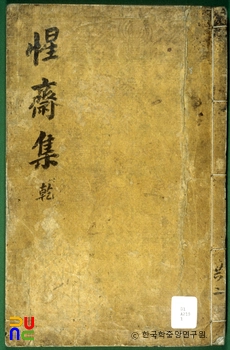 惺齋集
乾
共二
ⓒ 한국학중앙연구원